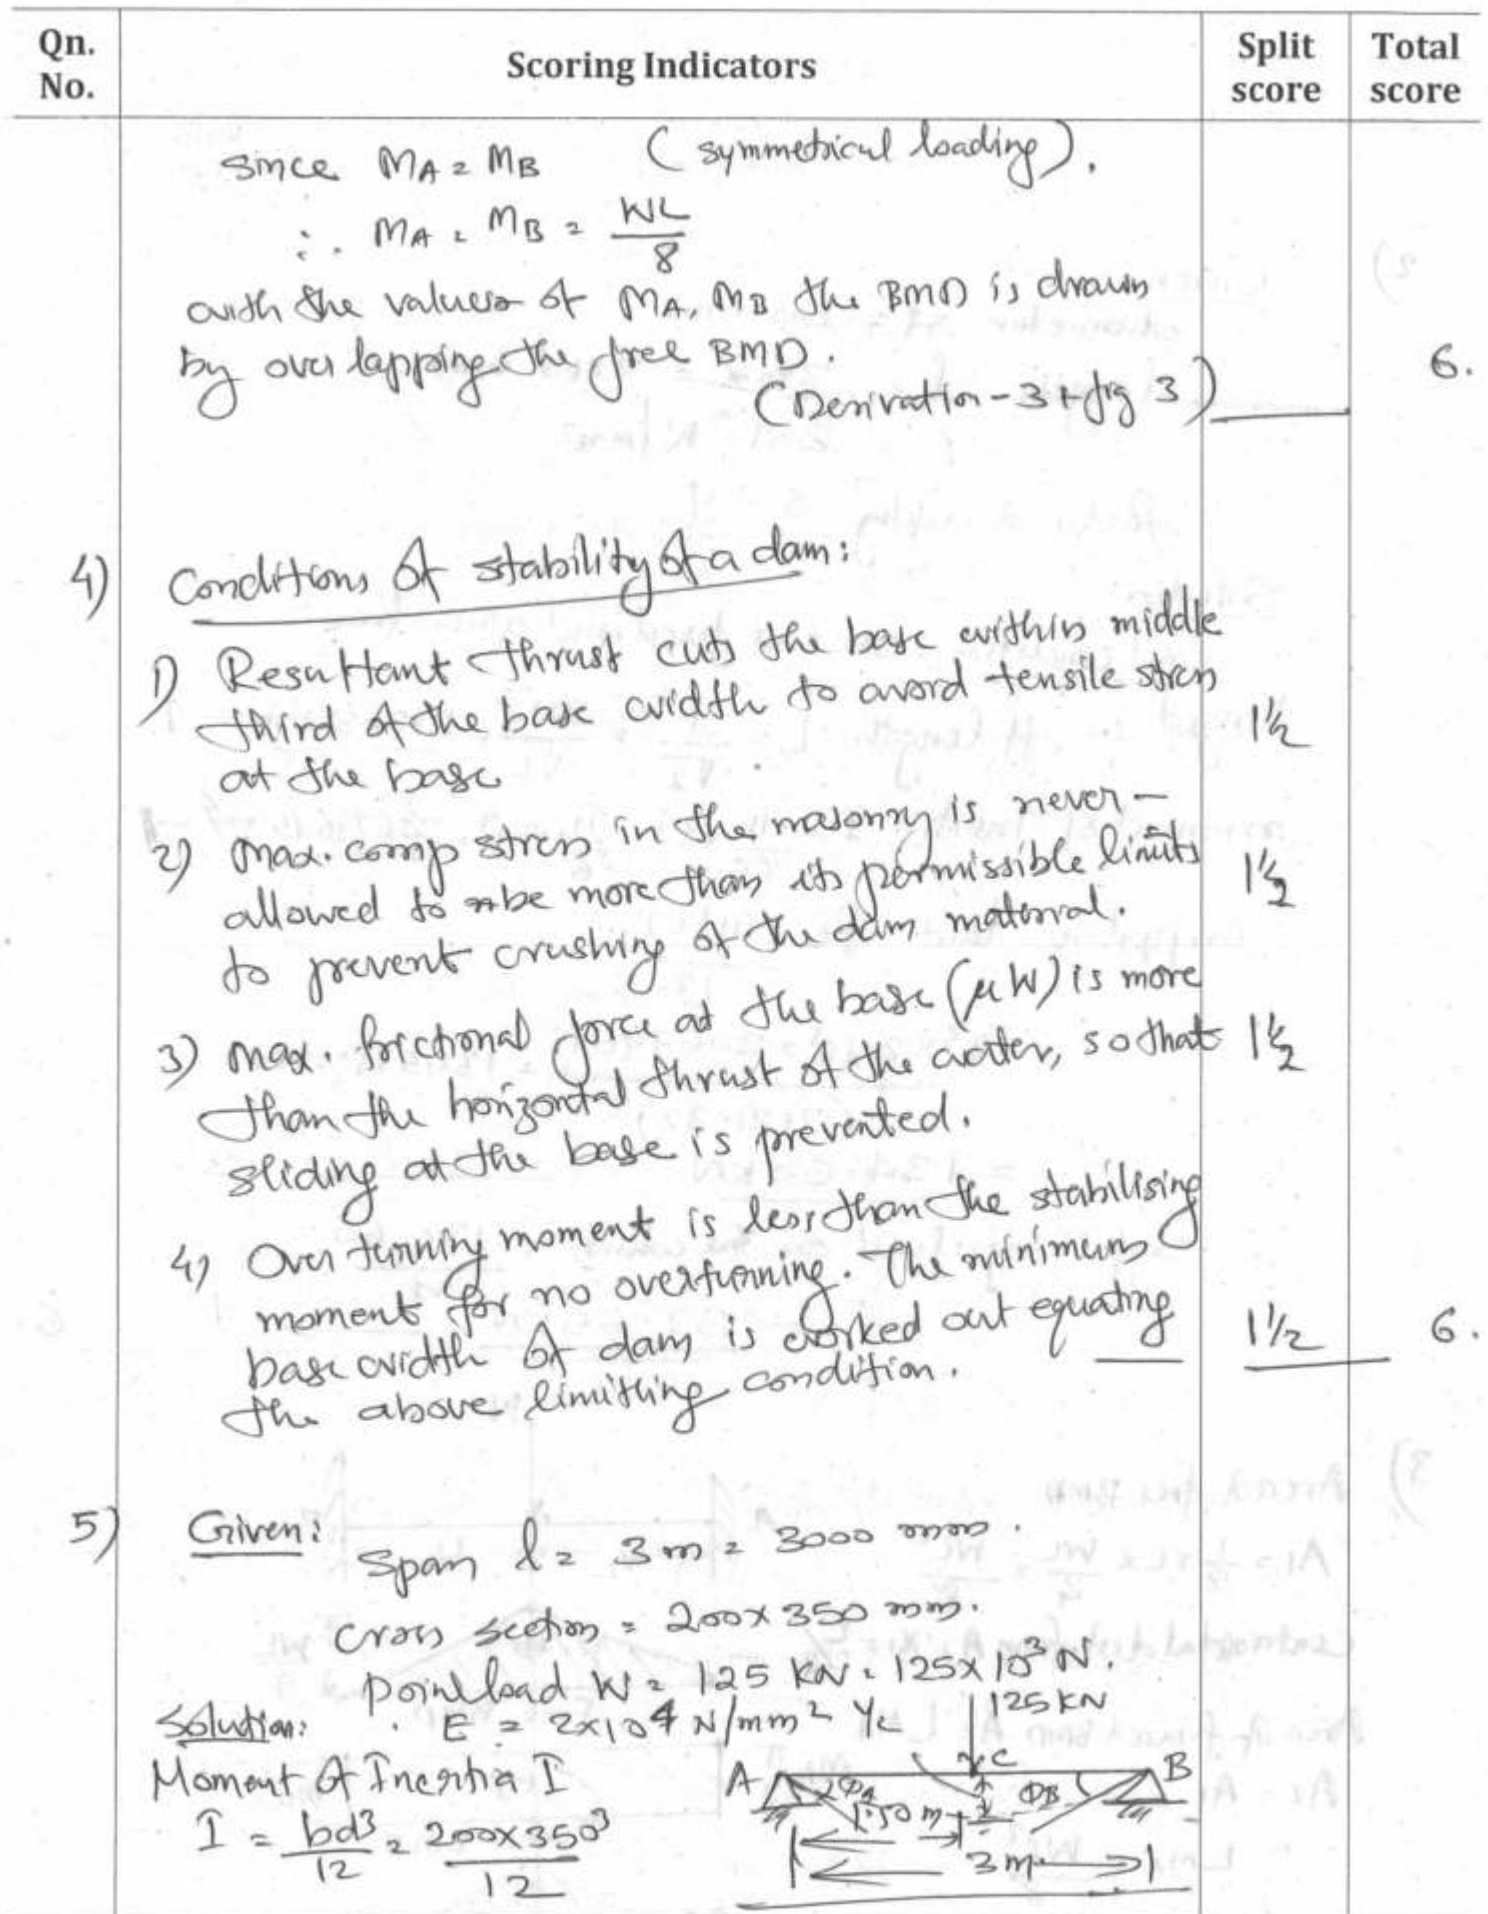 Qn. No.
Scoring Indicators
Split score
Total score
since MA = MB (symmetrical loading).
∴ MA = MB = WL/8
with the values of MA, MB the BMD is drawn
by over lapping the free BMD.
(Derivation - 3 + fig 3)
6.
4) Conditions of stability of a dam:
1) Resultant thrust cuts the base within middle
third of the base width to avoid tensile stress
at the base
1½
2) max. comp stress in the masonry is never -
allowed to be more than its permissible limits
to prevent crushing of the dam material.
1½
3) max. frictional force at the base (μW) is more
than the horizontal thrust of the water, so that
sliding at the base is prevented.
1½
4) Over turning moment is less than the stabilising
moment for no overturning. The minimum
base width of dam is worked out equating
the above limitting condition.
1½
6.
5) Given:
Span l = 3m = 3000 mm.
Cross section = 200x350 mm.
point load W = 125 KN = 125x10³ N.
E = 2x10⁴ N/mm² Yc
125 KN
Solution:
Moment of Inertia I
I = bd³/12 = 200x350³/12
A ΦA C ΦB B
1.50 m
3 m